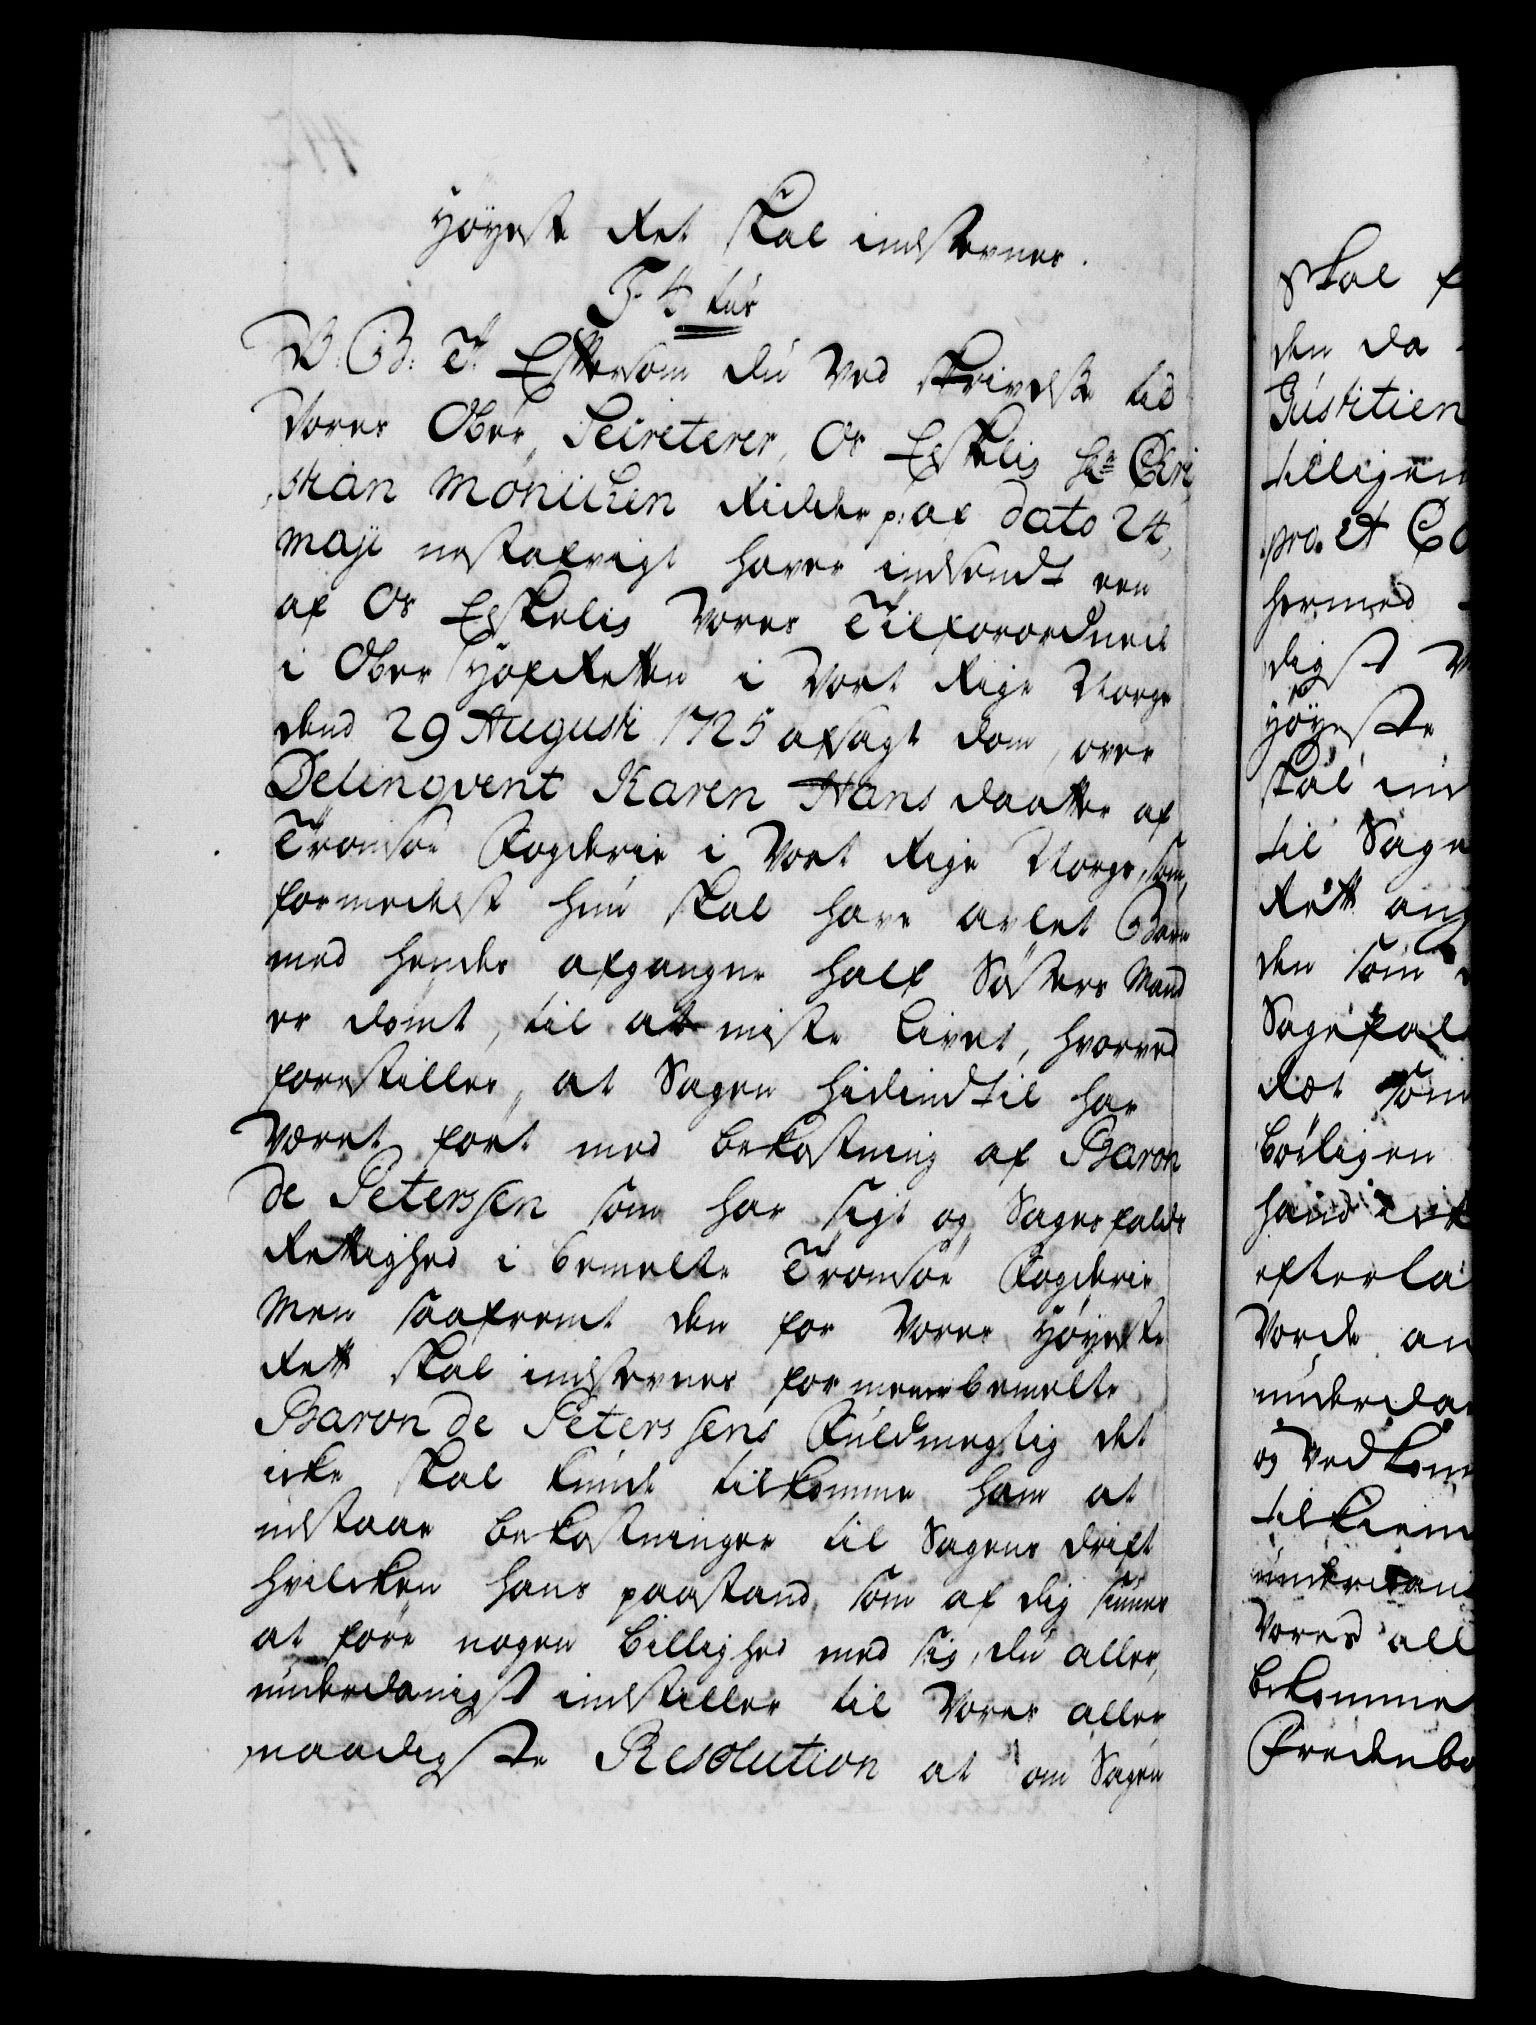 Høyeste Ret skal indstevnes.
F: 4 tus
V. G: T: Eftersom du ved skrivelse til
Vores Ober Secreterer, Os Elskelig Hr Chri
stian Mónichen Ridder p: af dato 24,
Maji nestafvigt haver indsendt een
af Os Elskelig Vores Tilforordnede
i Ober Hof Retten i Vort Rige Norge
dend 29 Augusti 1725 afsagt dom, over
Delinqvent Karen Hans daatter af
Tromsøe Fogderie i Vort Rige Norge, som,
formedelst hun skal have avlet Barn
med hendes afgangne half Søsters Mand
er dømt, til at miste Livet, hvorved
forestilles, at Sagen hidindtil har
Været ført med bekostning af Baron
de Peterssen som har sigt og Sagefalds
Rettighed i bemelte Tromsøe Fogderie
Men saafremt den for Vores Høyeste
Rett skal indstevnes formeener bemelte
Baron de Peterssens Fuldmegtig det
icke skal kunde tilkomme ham at
udstaae bekostninger til Sagens drift
hvilcken hans paastand, som af dig siunes
at føre nogen billighed med sig, du aller,
underdanigst indstiller til Vores aller
naadigste Resolution at om Sagen
skal f
den da
Justitien
tilligem
pro. et Co
hermed
digst V
Høyeste
skal ind
til Sage
Rett ang
den som
Sagefal
Ret som
børligen
haand
efterla
Vorde an
underda
og Ved kom
tilkiem
underdani
Vores all
bekomme
Fredenbo